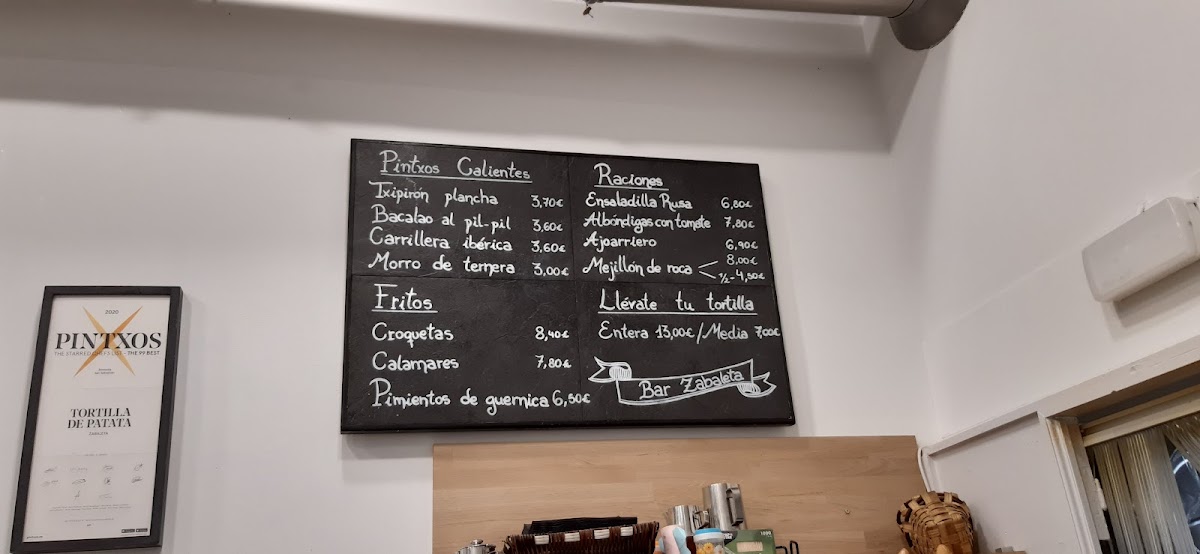 Pintxos Calientes
Txipirón plancha 3,70€
Bacalao al pil-pil 3,60€
Carrillera ibérica 3,60€
Morro de ternera 3,00€
Raciones
Ensaladilla Rusa 6,80€
Albóndigas con tomate 7,80€
Ajoarriero 6,90€
Mejillón de roca 8,00€
1/2 - 4,50€
Fritos
Croquetas 8,40€
Calamares 7,80€
Pimientos de guernica 6,50€
Llévate tu tortilla
Entera 13,00€/Media 7,00€
Bar Zabaleta
2020
PINTXOS
THE STARRED CHEFS LIST - THE 99 BEST
TORTILLA
DE PATATA
ZABALETA